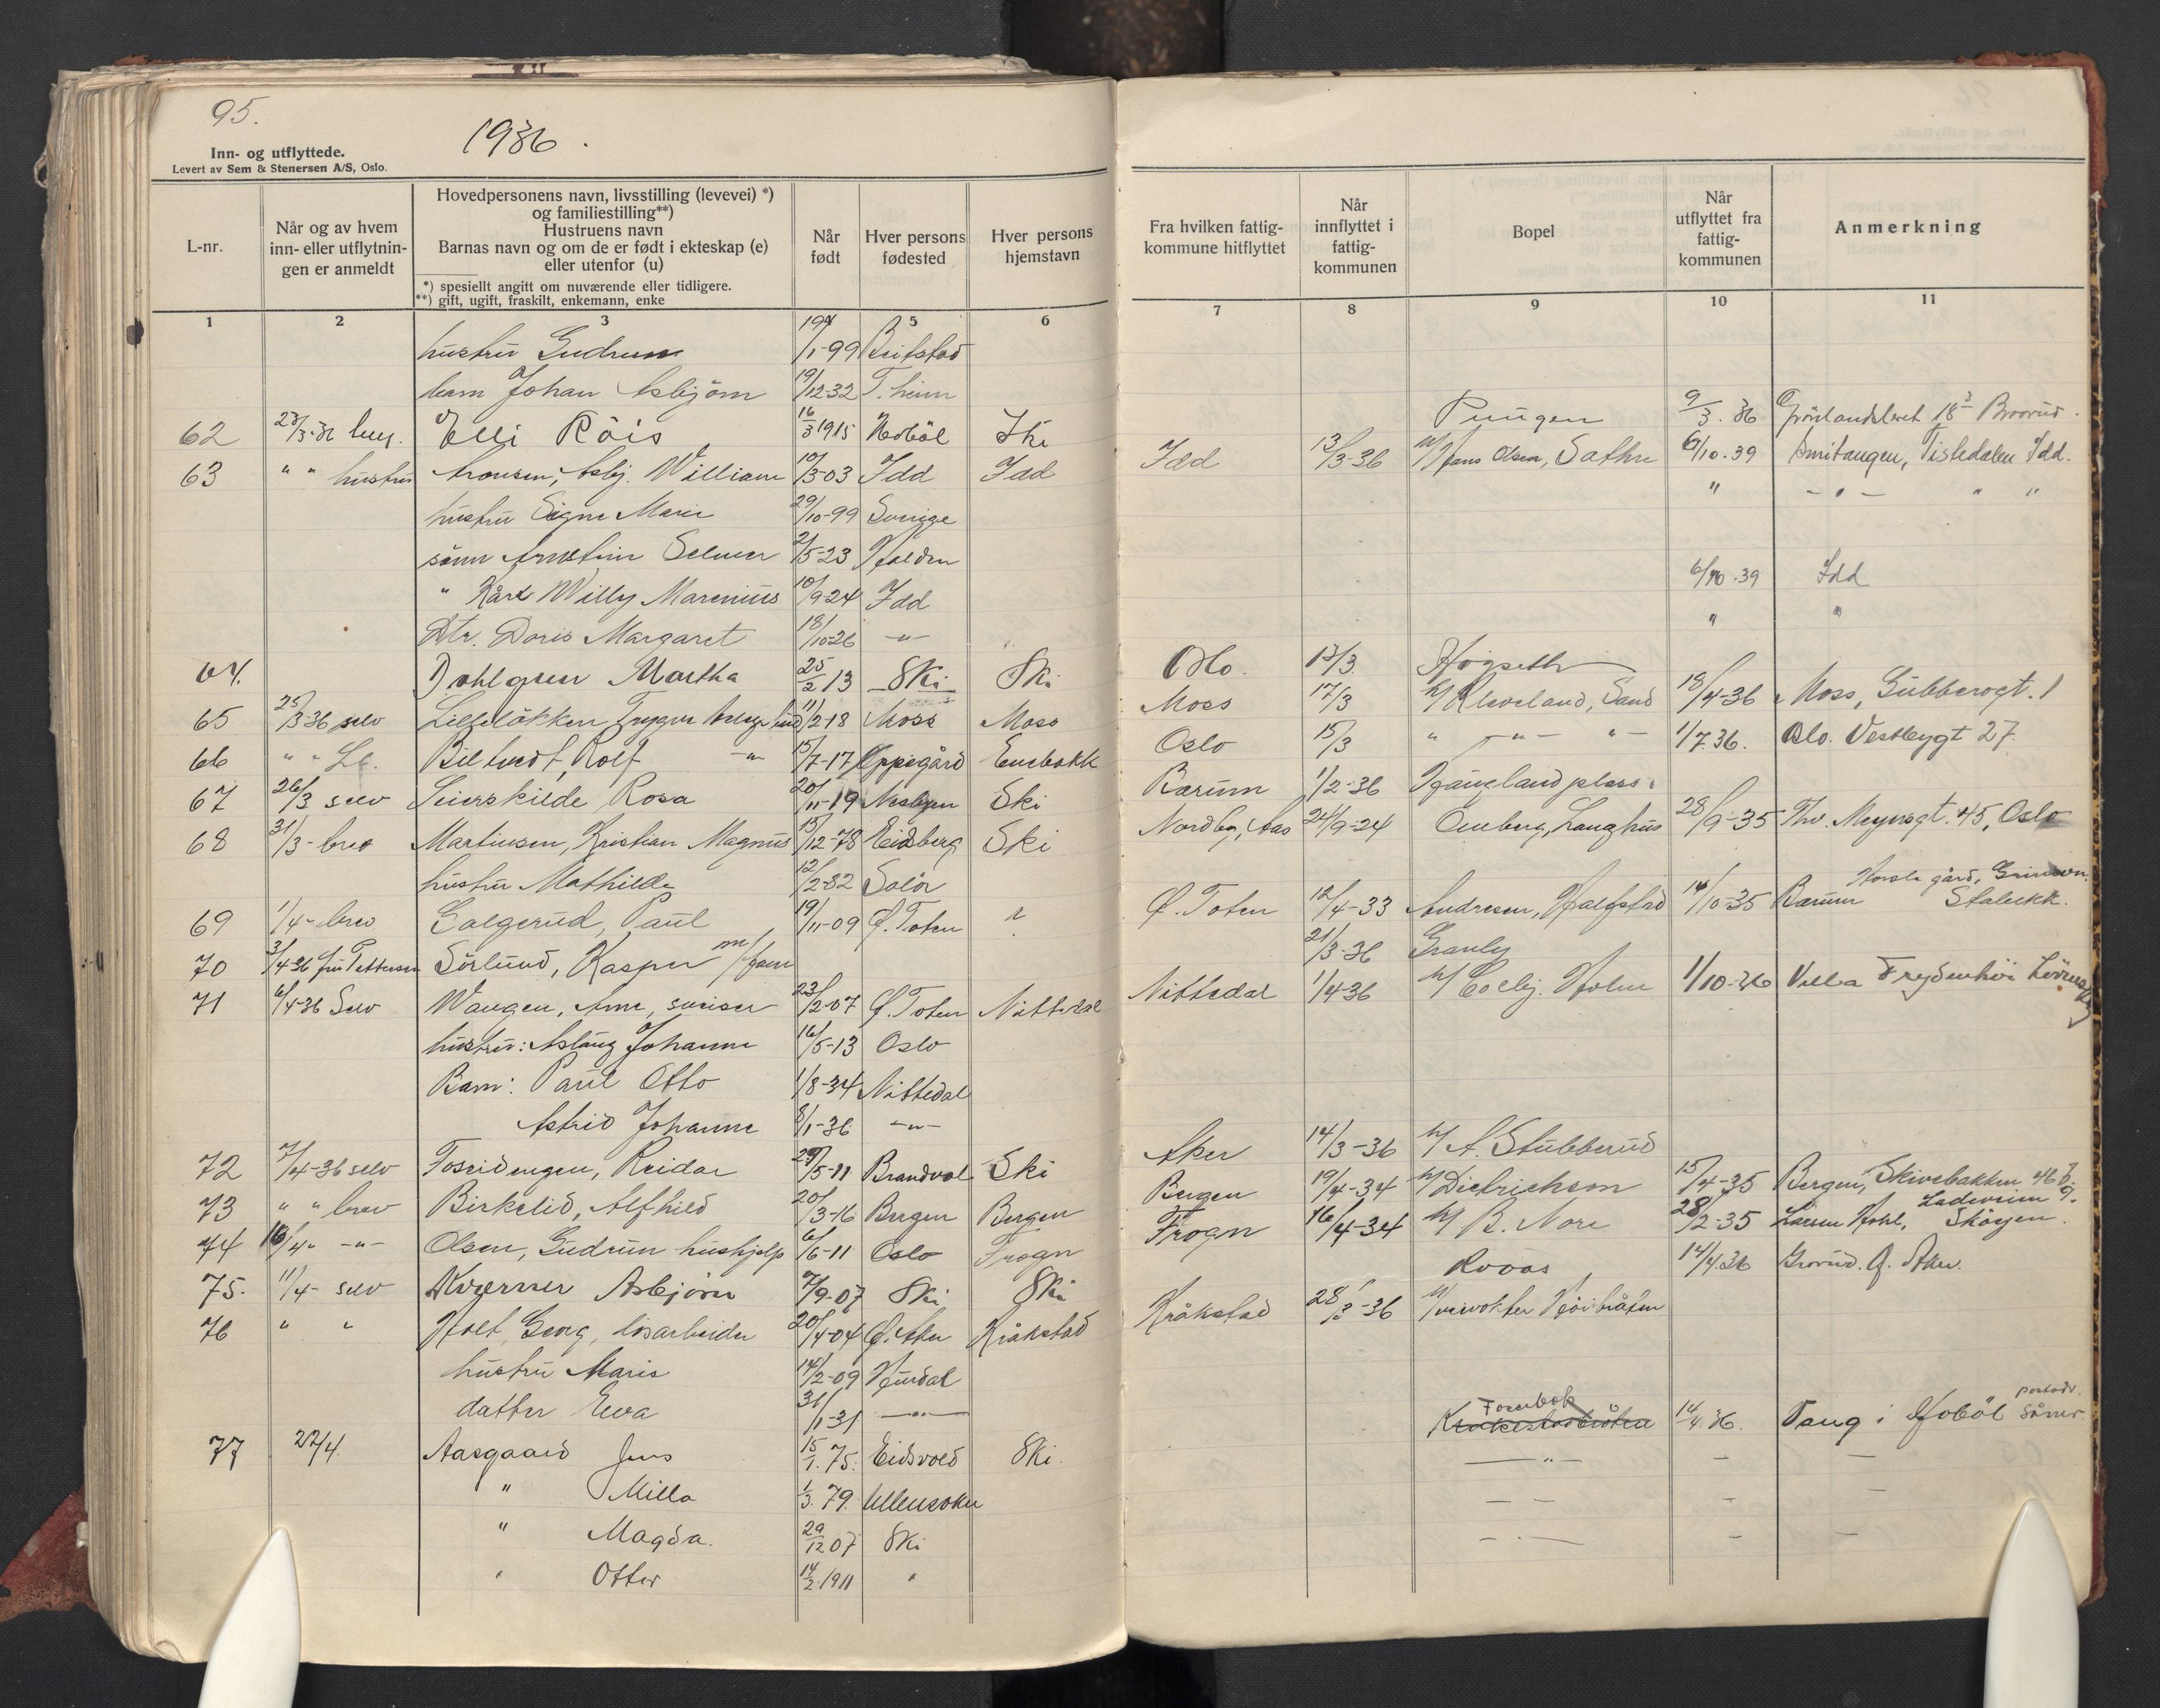 95.
1936.
Inn- og utflyttede.
Levert av Sem & Stenersen A/S, Oslo.
L-nr.
Når og av hvem inn- eller utflytningen er anmeldt
Hovedpersonens navn, livsstilling (levevei) *)
og familiestilling**)
Hustruens navn
Barnas navn og om de er født i ekteskap (e)
eller utenfor (u)
*) spesiellt angitt om nuværende eller tidligere.
**) gift, ugift, fraskilt, enkemann, enke
Når født
Hver persons fødested
Hver persons hjemstavn
Fra hvilken fattigkommune hitflyttet
Når innflyttet i fattigkommunen
Bopel
Når utflyttet fra fattigkommunen
Anmerkning
1 2 3 4 5 6 7 8 9 10 11
hustru Gudrun 19/1-99
barn Johan Asbjörn 19/12-32 T.heim
62 23/3-36 Elli Röis 16/3 1915 Hobøl Ski Pungen 9/3.36
63 " " hustru Aronsen, Asbj. William 10/3-03 Idd Idd Idd 13/3-36 h/ Hans Olsen, Sathre 6/10.39 Tistedalen Idd.
hustru Signe Marie 29/10-99 Sverige " -"- " "
sønn Selmer 2/5-23 Halden
" Kåre Willy Marenius 10/9-24 Idd 6/10.39 Idd
Dtr. Doris Margaret 18/10-26 -"- " "
64. Dahlgren Martha 25/2 13 Ski Ski Oslo. 13/3. Högseth
65 25/3 36 selv Lilleløkken, Trygve 11/2-18 Moss Moss Moss 17/3 h/ Kleveland, Sand 18/4-36 Moss, Gubberogt. 1
66 " " Rolf -"- 15/7-17 Oppegård Enebakk Oslo 15/3 " -"- "- 1/7 36. Oslo. Vestbygt 27
67 26/3 selv Seierskilde, Rosa 20/11-19 Nesbyen Ski Bærum 1/2-36 Haugland plass.
68 31/3- brev Martinsen, Kristian Magnus 15/12-78 Eidsberg Ski Nordby, Aas 24/9-24 Omberg, Langhus 28/9-35 Thv. Meyersgt. 45, Oslo
hustru Mathilde 12/2-82 Solør
69 1/4- brev Galgerud, Paul 19/11-09 Ø. Toten ? Ø. Toten 12/4-33 Andresen, Halfstad 14/10-35 Bærum gård, Stabekk.
70 3/4-36 fru Pettersen Sørlund, Kasper m/fam 21/3-36 Granly
71 6/4-36 Selv Waugen, Arne, sveiser 23/2-07 Ø. Toten Nittedal Nittedal 1/4-36 h/ Colbj. Holm 1/10-36 Villa Frydenhöi
hustru: Aslaug Johanne 16/5-13 Oslo
Barn: Paul Otto 1/8-34 Nittedal
Astrid Johanne 8/1-36 -"-
72 7/4-36 selv Foseidengen, Reidar 29/5-11 Brandval Ski Aker 14/3-36 h/ A. Stubberud
73 " " brev Birkelid, Alfhild 20/3-16 Bergen Bergen Bergen 19/4-34 h/ Dietrichson 15/4-35 Bergen, Skivebakken 46 b.
74 10/4- -"- Olsen, Gudrun hushjelp 6/6-11 Oslo Frogn Frogn 16/4-34 h/ B. Nore 28/2-35 Larsen Hohl, Skøyen.
75. 11/4- selv Kværner Asbjörn 7/9-07 Ski Ski Roås 14/4.36 Grorud. Ø. Aker.
76 " " Holt, Georg, løsarbeider 20/4-04 Ø. Aker Kråkstad Kråkstad 28/3-36
hustru Maris 14/2-09 Hurdal
datter Eva 31/1-31 -"-
77 22/4. Aasgaard Jens 15/1.75. Eidsvold Ski. Kråkstadbråten Foserbok 14/4.36. Taug i Hobøl postadr. Såner
" Milla 1/3.79. Ullensaker -"- - -
" Magda. 29/12 07 Ski - - - -
" Otter 14/2 1911 " - - - -